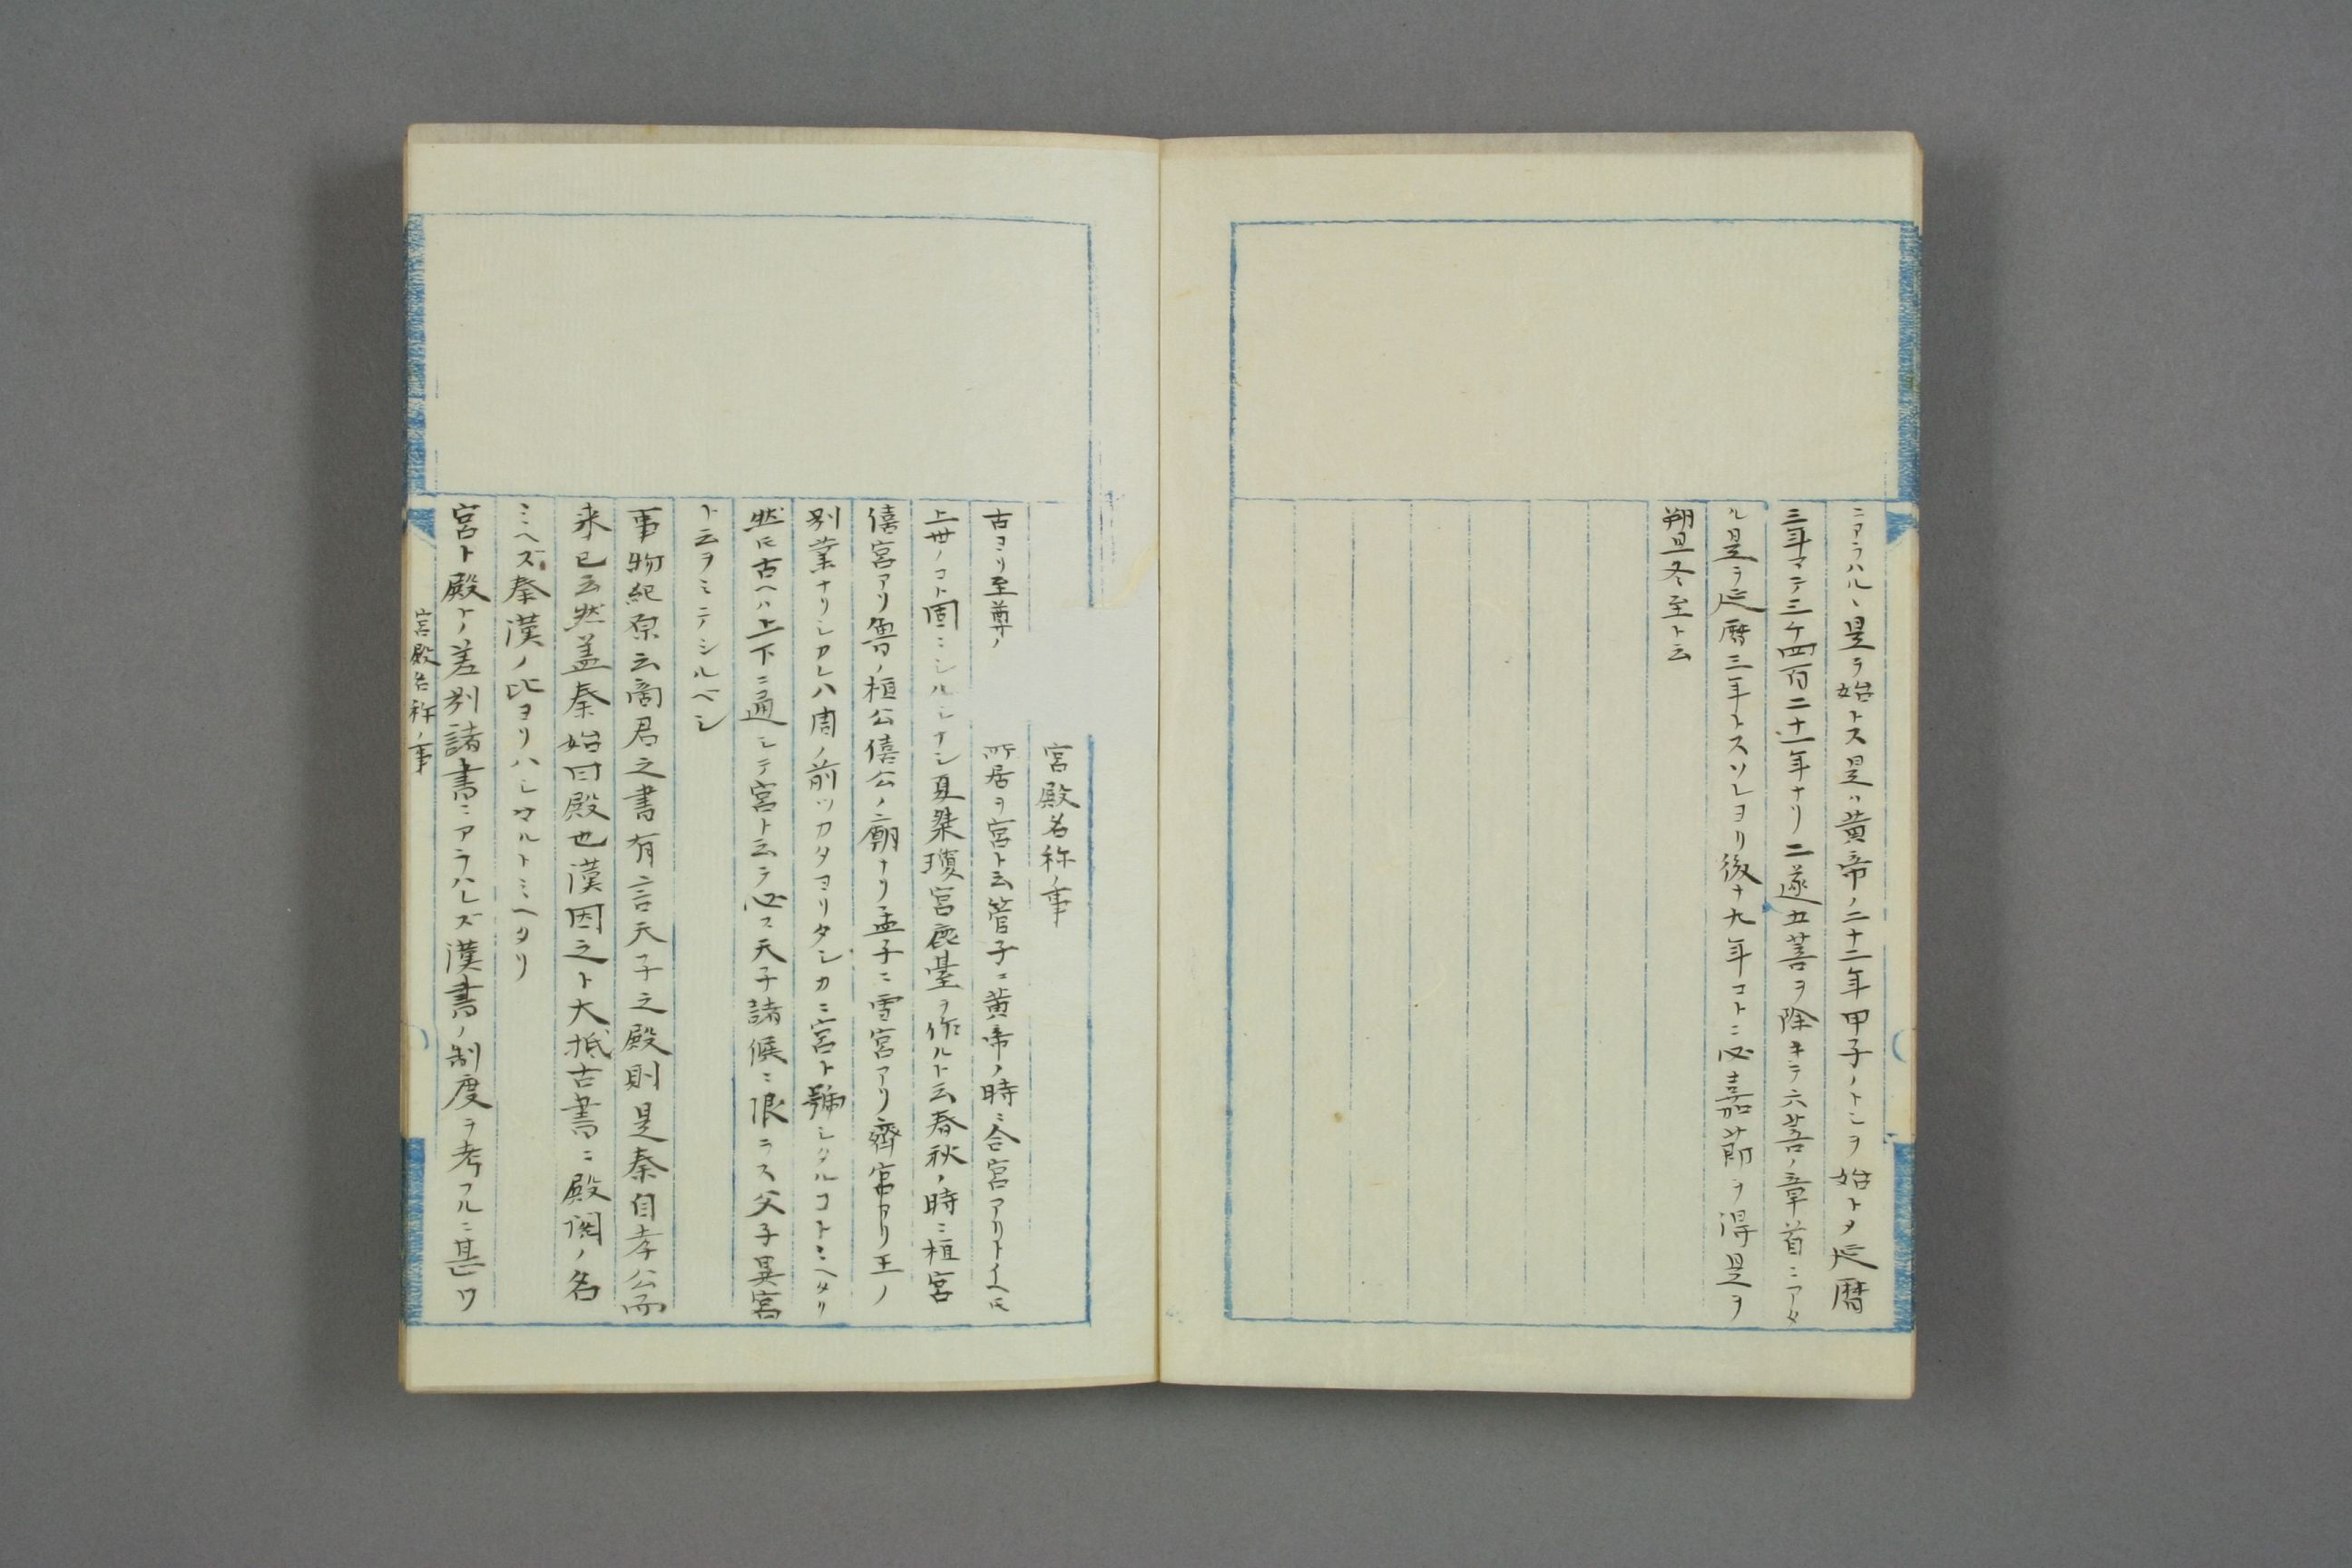 ニアラハルヽ是ヲ始トス是ハ黄帝ノ二十二年甲子ノトシヲ始トメ延暦
三年マテ三千四百二十一年ナリ二遂五蔀ヲ除キテ六蔀ノ章首ニアタ
ル是ヲ延暦三年トスソレヨリ後十九年コトニ必嘉節ヲ得是ヲ
朔旦冬至ト云
宮殿名称ノ事
古ヨリ至尊ノ所居ヲ宮ト云管子ニ黄帝ノ時ニ合宮アリトイヘ𪜈
上世ノコト固ニシルシナシ夏桀瓊宮鹿臺ヲ作ルト云春秋ノ時ニ桓宮
僖宮アリ魯ノ桓公僖公ノ廟ナリ孟子ニ雪宮アリ齊宮アリ王ノ
別業ナリシカレハ周ノ前ツカタヨリタシカニ宮ト號シタルコトミヘタリ
然𪜈古ヘハ上下ニ通シテ宮ト云テ必ス天子諸候ニ限ラス父子異宮
ト云ヲミテシルベシ
事物紀原云商君之書有言天子之殿則是秦自孝公而
来已云然盖秦始曰殿也漢因之ト大抵古書ニ殿閣ノ名
ミヘズ秦漢ノ比ヨリハシマルトミヘタリ
宮ト殿トノ差別諸書ニアラハレズ漢書ノ制度ヲ考フルニ甚ワ
宮殿名称ノ事